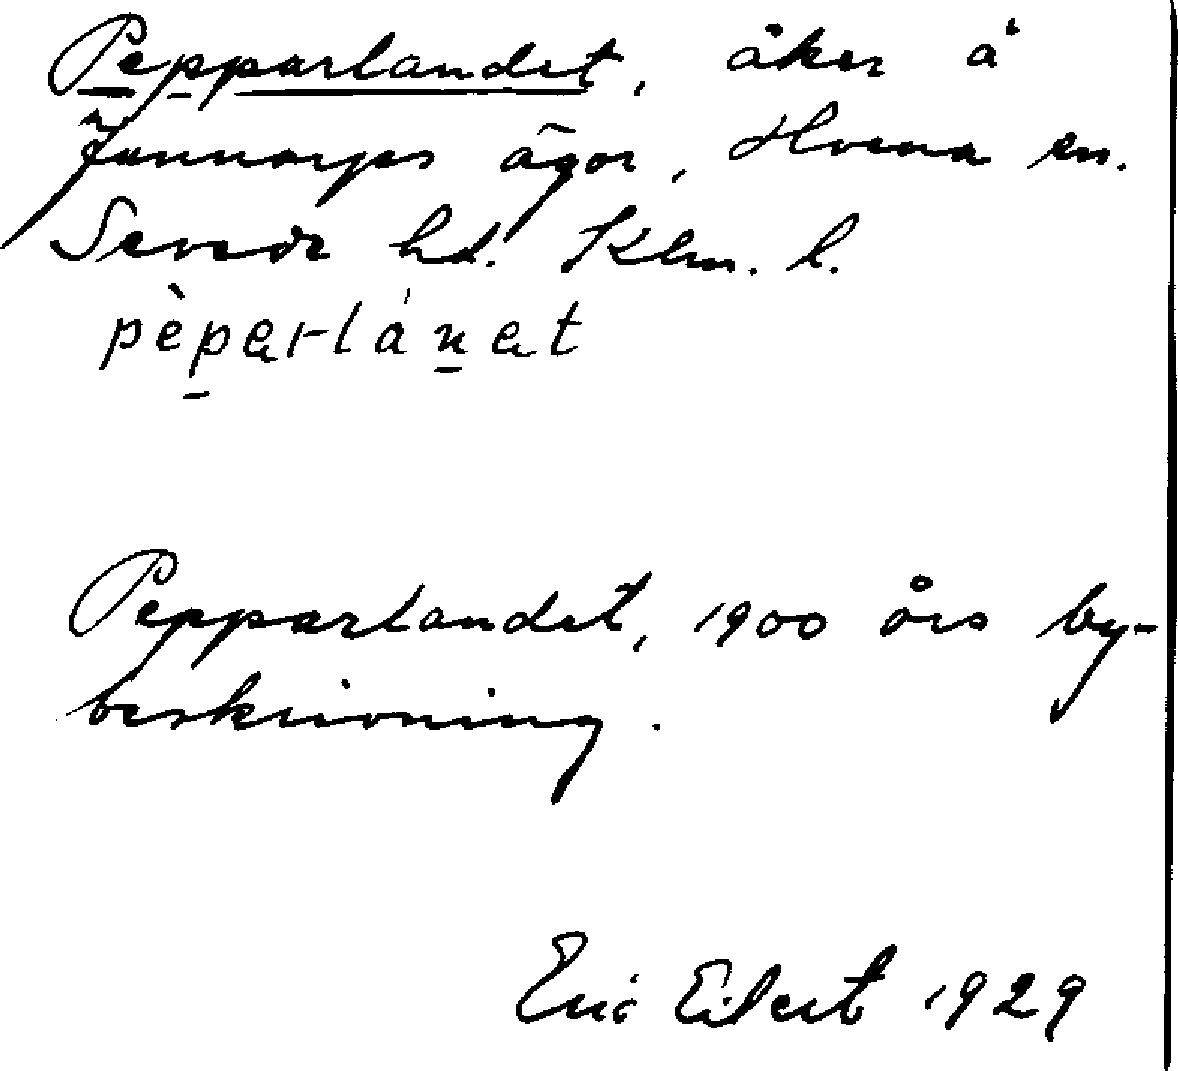 Pepparlandet, åker å
Jannarps ägor, Hvena sn.
Sevede hd. Klm. l.
pèpərlánət
Pepparlandet, 1900 års by-
beskrivning.
Eric Eilert 1929